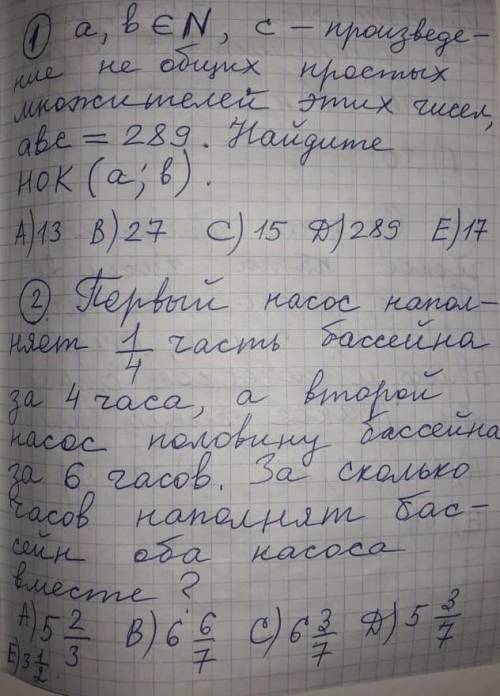 ① a, b ∈ N, c – произведе-
ние не общих простых
множителей этих чисел,
abc = 289. Найдите
НОК (a; b).
A) 13 B) 27 C) 15 D) 289 E) 17
② Первый насос напол-
няет 1/4 часть бассейна
за 4 часа, а второй
насос половину бассейна
за 6 часов. За сколько
часов наполнят бас-
сейн оба насоса
вместе?
A) 5 2/3 B) 6 6/7 C) 6 3/7 D) 5 3/7
E) 3 1/2.